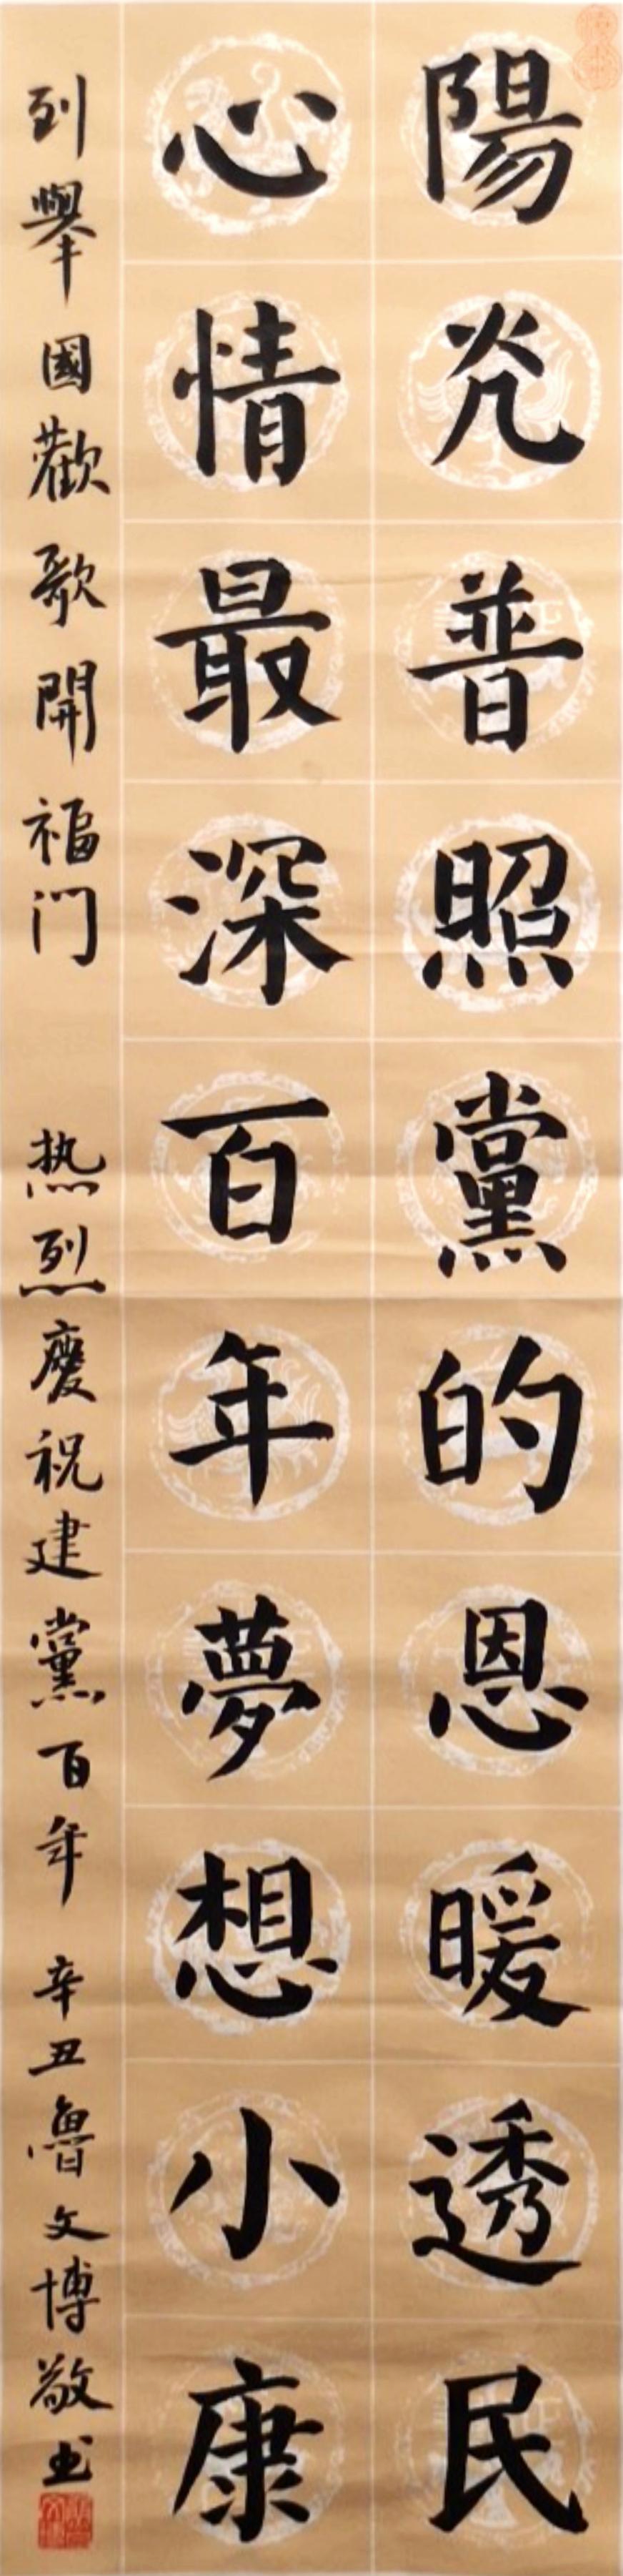 陽光普照黨的恩暖透民
心情最深百年夢想小康
到舉國歡歌開福门 热烈慶祝建黨百年 辛丑魯文博敬书